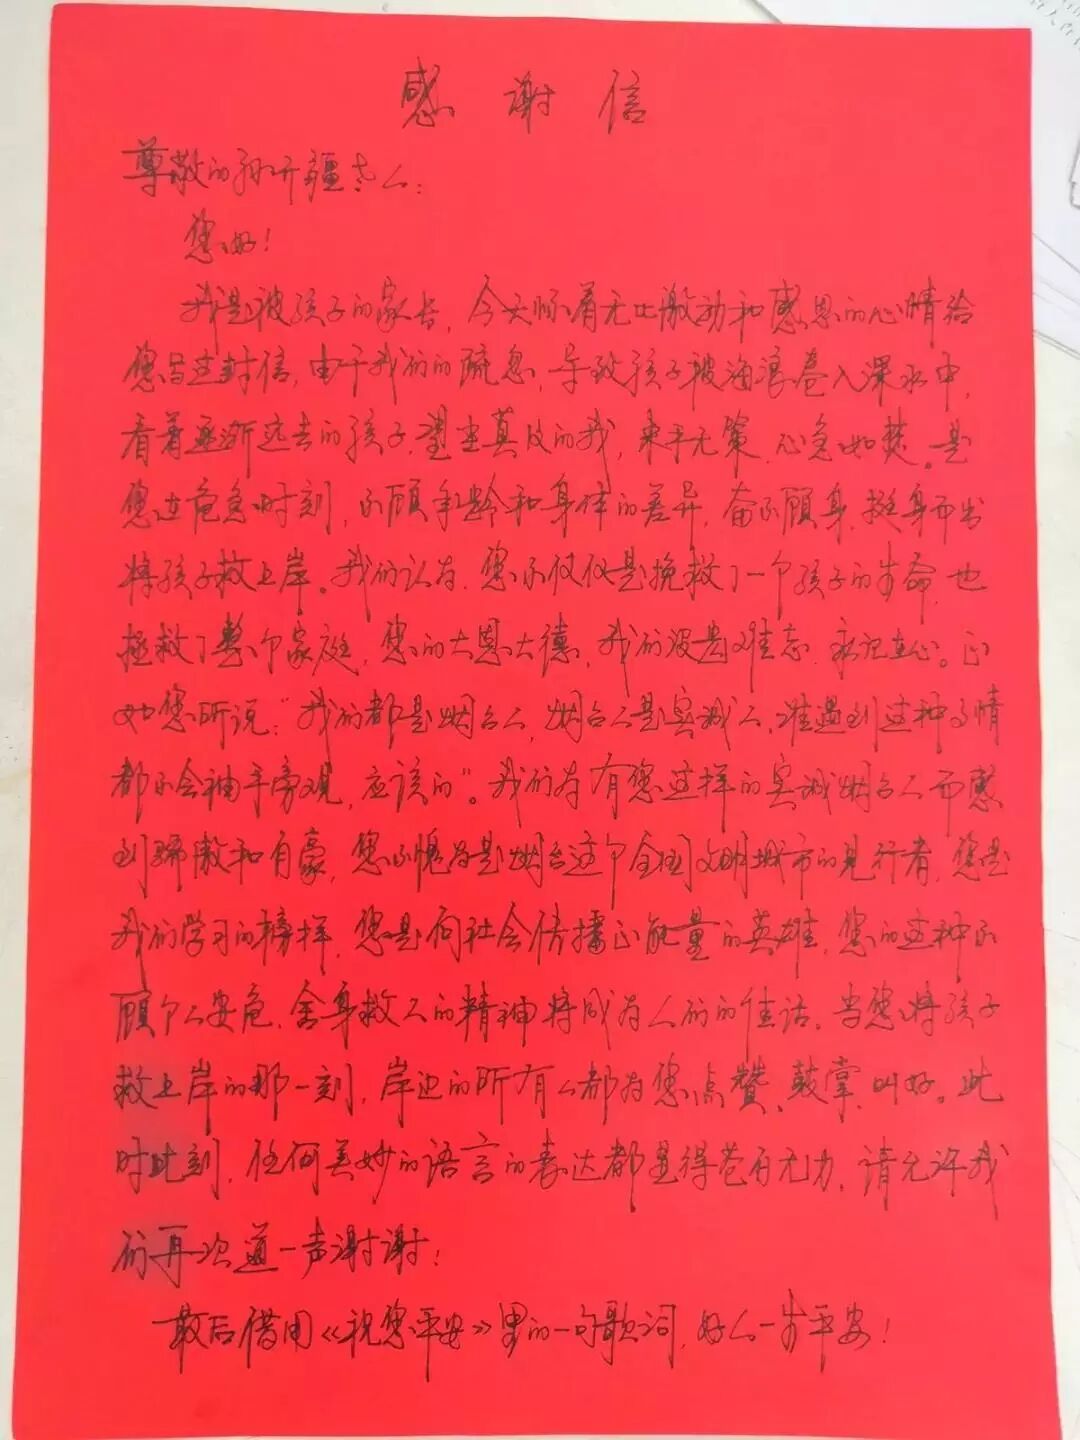 感谢信
尊敬的孙开疆老人:
您好!
我是被孩子的家长,今天怀着无比激动和感恩的心情给
您写这封信,由于我们的疏忽,导致孩子被海浪卷入深水中,
看着逐渐远去的孩子,望生莫及的我,束手无策,心急如焚。是
您在危急时刻,不顾年龄和身体的差异,奋不顾身,挺身而出
将孩子救上岸。我们认为,您不仅仅是挽救了一个孩子的生命,也
拯救了整个家庭,您的大恩大德,我们没齿难忘,永记在心。正
如您所说:“我们都是烟台人,烟台人是实诚人,谁遇到这种事情
都不会袖手旁观,应该的”。我们为有您这样的实诚烟台人而感
到骄傲和自豪,您不愧为是烟台这个全国文明城市的见行者,您是
我们学习的榜样,您是向社会传播正能量的英雄,您的这种不
顾个人安危,舍身救人的精神将成为人们的佳话。当您将孩子
救上岸的那一刻,岸边的所有人都为您点赞、鼓掌、叫好。此
时此刻,任何美妙的语言的表达都显得苍白无力,请允许我
们再次道一声谢谢!
最后借用《祝您平安》里的一句歌词,好人一生平安!